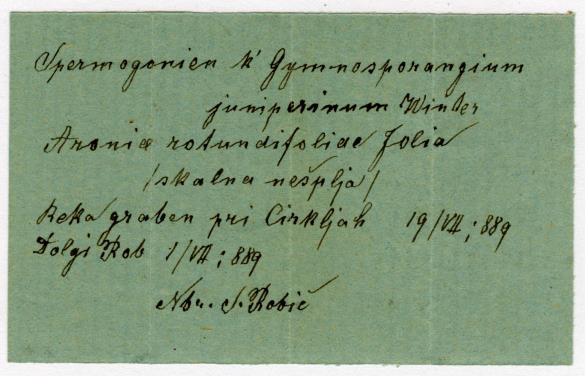 Spermogonien k' Gymnosporangium
juniperinum Winter
Aroniæ rotundifoliae folia
/skalna nešplja/
Reka graben pri Cirkljah 19/VII; 889
Dolgi Rob 1/VII; 889
Nbr. S. Robič